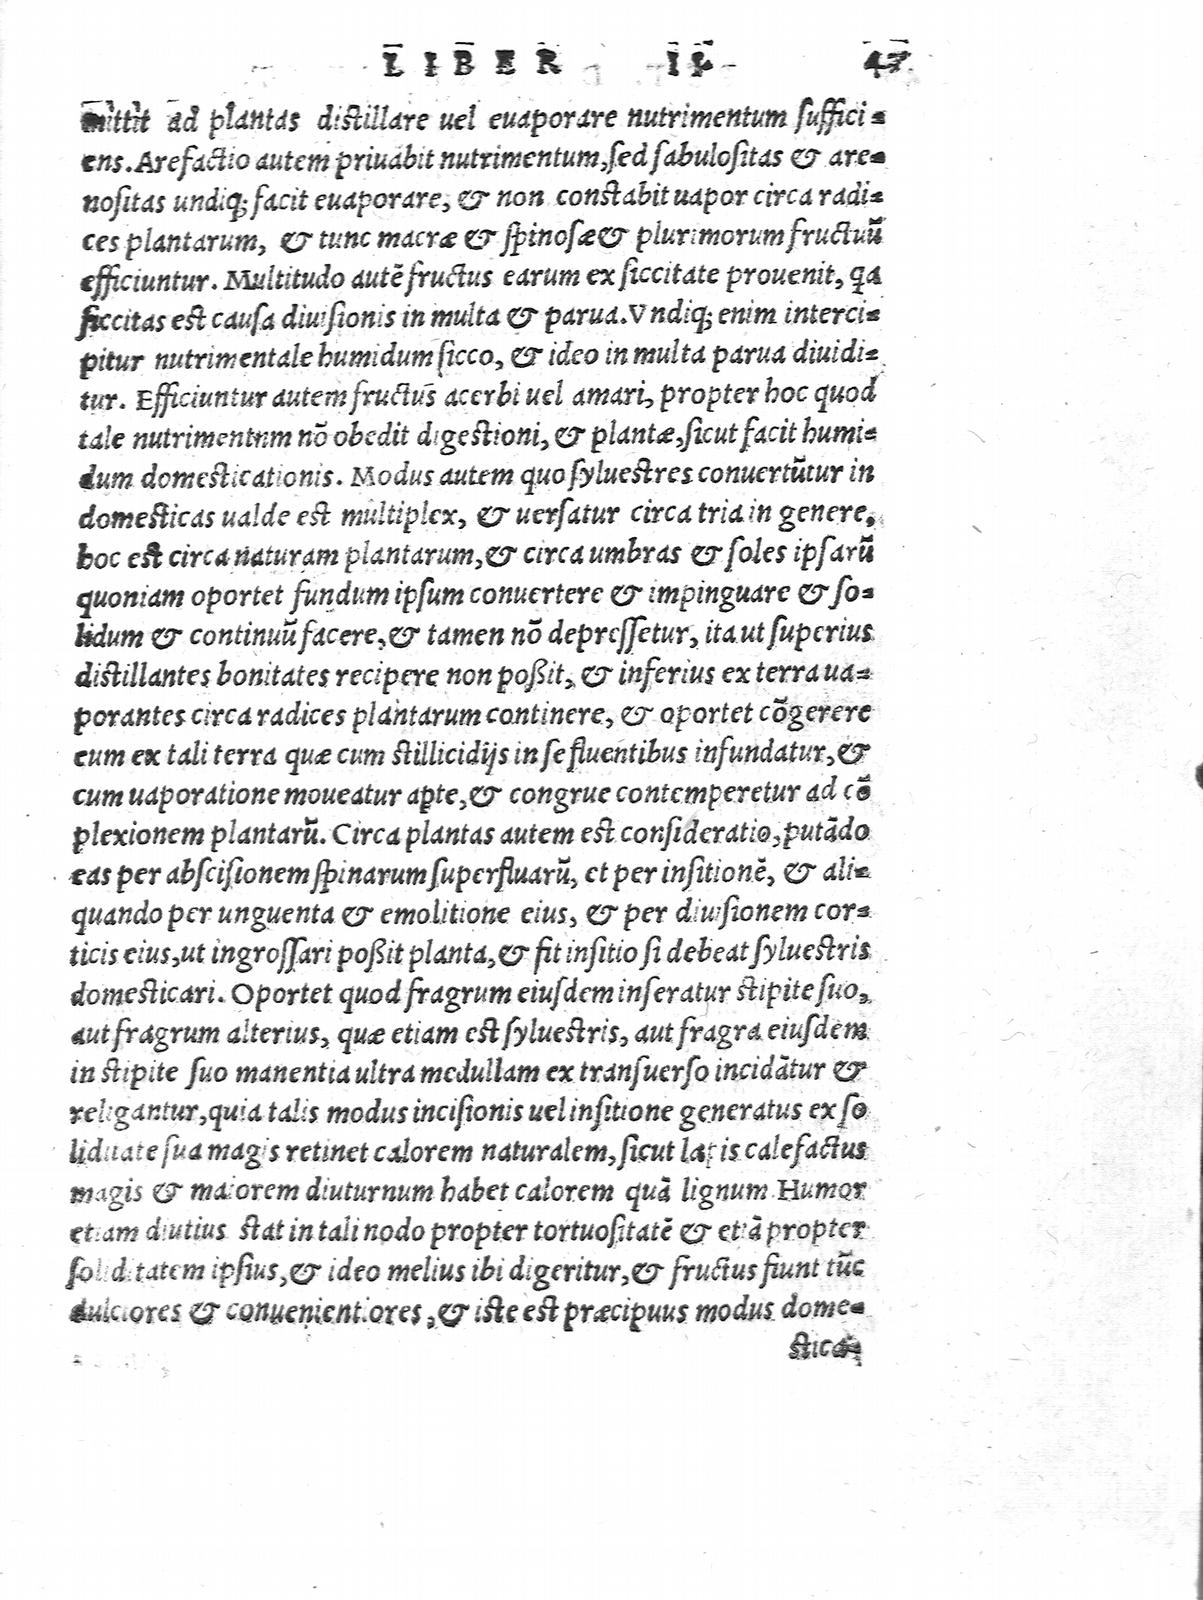 LIBER II. 47
mittit ad plantas distillare uel euaporare nutrimentum suffici-
ens. Arefactio autem priuabit nutrimentum, sed sabulositas & are-
nositas undiq; facit euaporare, & non constabit uapor circa radi-
ces plantarum, & tunc macræ & spinosæ & plurimorum fructuũ
efficiuntur. Multitudo autẽ fructus earum ex siccitate prouenit, qa
siccitas est causa diuisionis in multa & parua. Vndiq; enim interci-
pitur nutrimentale humidum sicco, & ideo in multa parua diuidi-
tur. Efficiuntur autem fructus acerbi uel amari, propter hoc quod
tale nutrimentum nõ obedit digestioni, & plantæ, sicut facit humi-
dum domesticationis. Modus autem quo syluestres conuertũtur in
domesticas ualde est multiplex, & uersatur circa tria in genere,
hoc est circa naturam plantarum, & circa umbras & soles ipsarũ
quoniam oportet fundum ipsum conuertere & impinguare & so-
lidum & continuũ facere, & tamen nõ depressetur, ita ut superius
distillantes bonitates recipere non poßit, & inferius ex terra ua-
porantes circa radices plantarum continere, & oportet cõgerere
eum ex tali terra quæ cum stillicidijs in se fluentibus infundatur, &
cum uaporatione moueatur apte, & congrue contemperetur ad cõ
plexionem plantarũ. Circa plantas autem est consideratio, putãdo
eas per abscisionem spinarum superfluarũ, et per insitionẽ, & ali-
quando per unguenta & emolitione eius, & per diuisionem cor-
ticis eius, ut ingrossari poßit planta, & fit insitio si debeat syluestris
domesticari. Oportet quod fragrum eiusdem inseratur stipite suo,
aut fragrum alterius, quæ etiam est syluestris, aut fragra eiusdem
in stipite suo manentia ultra medullam ex transuerso incidãtur &
religantur, quia talis modus incisionis uel insitione generatus ex so
liditate sua magis retinet calorem naturalem, sicut lapis calefactus
magis & maiorem diuturnum habet calorem quã lignum. Humor
etiam diutius stat in tali nodo propter tortuositatẽ & etiã propter
soliditatem ipsius, & ideo melius ibi digeritur, & fructus fiunt tũc
dulciores & conuenientiores, & iste est præcipuus modus dome-
stica-